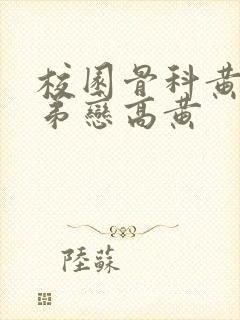 校園骨科黃
弟戀高黃
陸蘇